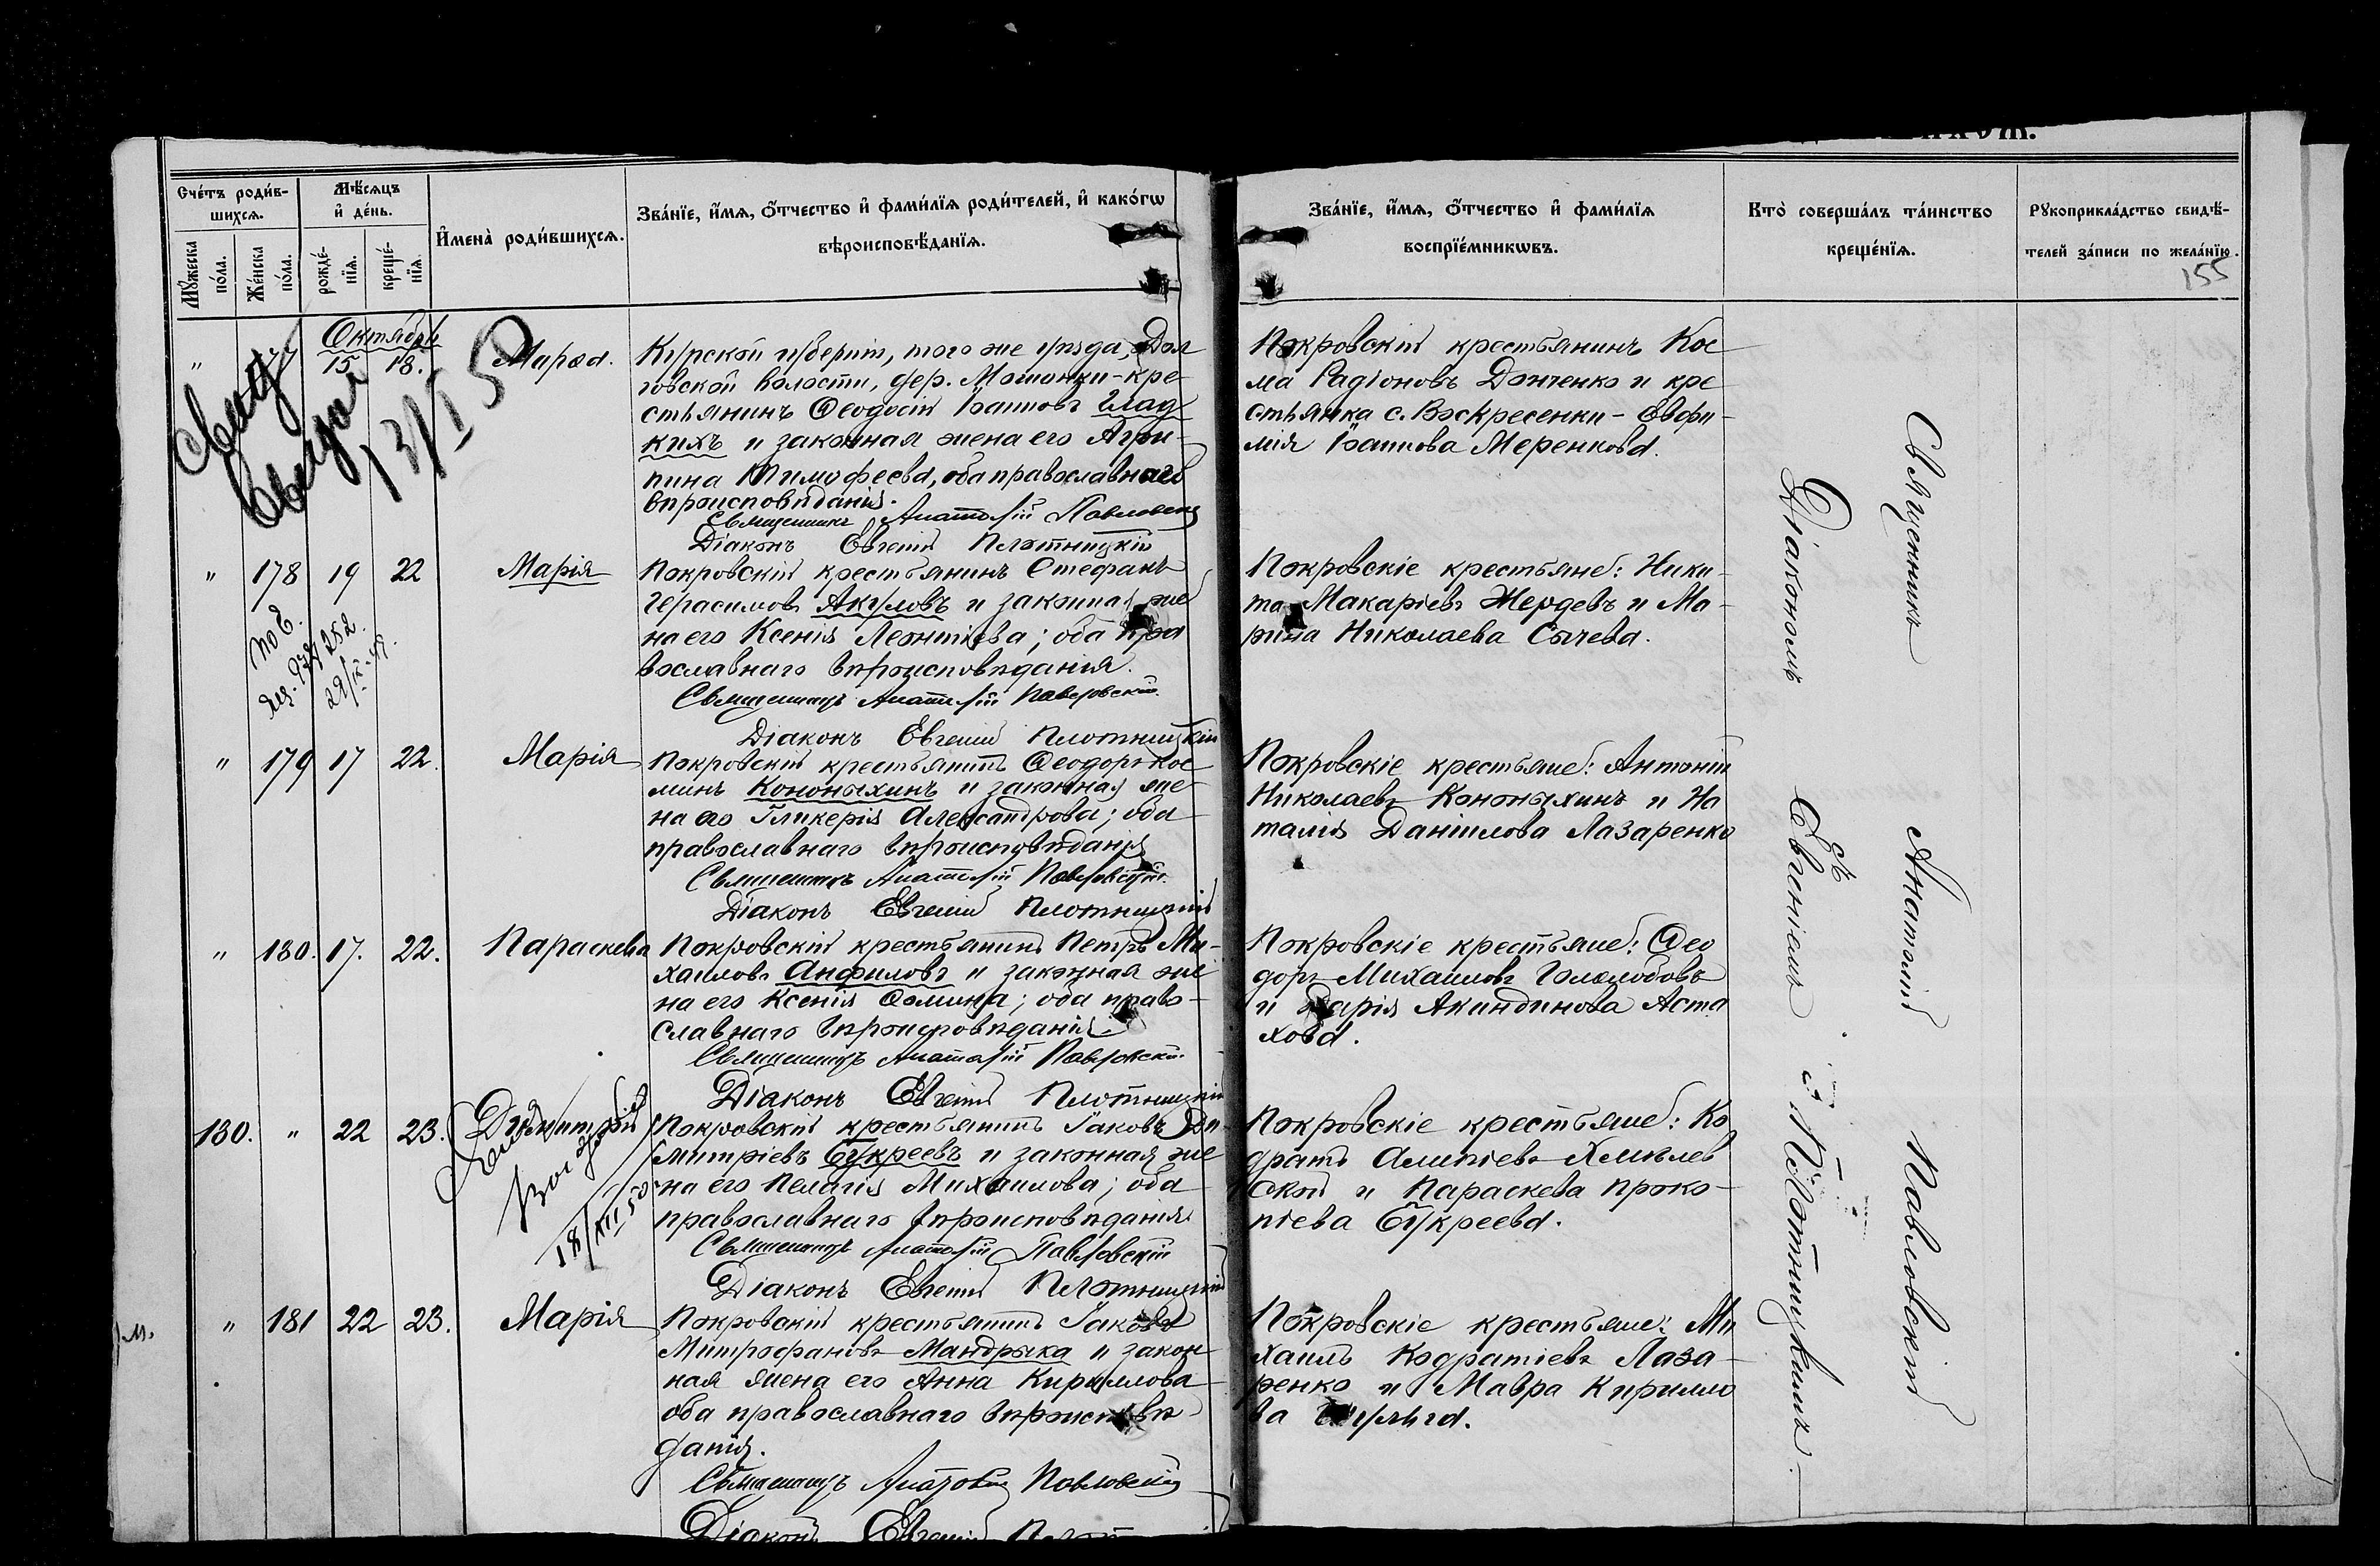 Счетъ родив-
шихся.
Мѣсяцъ
и день.
Мужеска
пола.
Женска
пола.
рожде-
нія.
креще-
нія.
Имена родившихся.
Званіе, имя, отчество и фамилія родителей, и какогѡ
вѣроисповѣданія.
Званіе, имя, отчество и фамилія
воспріемникѡвъ.
Кто совершалъ таинство
крещенія.
Рукоприкладство свидѣ-
телей записи по желанію.
155
Октябрь
" 177 15 18. Марѳа.
Курской губерніи, того же уѣзда, Дол
говской волости, дер. Мошонки - кре-
стьянинъ Ѳеодосій Іоанновъ Глад
кихъ и законная жена его Агри-
пина Тимофеева, оба православнаго
вѣроисповѣданія.
Священникъ Анатолій Павловскій
Діаконъ Евгеній Плотницкій
Покровскій крестьянинъ Кос
ма Радіоновъ Донченко и кре
стьянка с. Воскресенки - Евфи-
мія Іоаннова Меренкова.
13/I 50
" 178 19 22 Марія
Покровскій крестьянинъ Стефанъ
Герасимовъ Акуловъ и законная же
на его Ксенія Леонтіева; оба пра
вославнаго вѣроисповѣданія.
Священникъ Анатолій Павловскій.
Діаконъ Евгеній Плотницкій
Покровскіе крестьяне: Ники-
та Макаріевъ Жердевъ и Ма-
рина Николаева Сычева.
" 179 17 22. Марія
Покровскій крестьянинъ Ѳеодоръ Кос
минъ Кононыхинъ и законная же-
на его Гликерія Александрова; оба
православнаго вѣроисповѣданія
Священникъ Анатолій Павловскій.
Діаконъ Евгеній Плотницкій
Покровскіе крестьяне: Антоній
Николаевъ Кононыхинъ и На
талія Даніилова Лазаренко
" 180. 17. 22. Параскева
Покровскій крестьянинъ Петръ Ми-
хаиловъ Анфиловъ и законная же
на его Ксенія Ѳомина; оба право-
славнаго вѣроисповѣданія.
Священникъ Анатолій Павловскій.
Діаконъ Евгеній Плотницкій
Покровскіе крестьяне: Ѳео
доръ Михаиловъ Гололобовъ
и Дарія Акиндинова Аста
хова.
130. " 22 23. Димитрій
Покровскій крестьянинъ Іаковъ Ди-
митріевъ Букреевъ и законная же
на его Пелагія Михаилова; оба
православнаго вѣроисповѣданія
Священникъ Анатолій Павловскій
Діаконъ Евгеній Плотницкій
Покровскіе крестьяне: Ко
дратъ Алипіевъ Хмѣлев
ской и Параскева Проко-
піева Букреева.
18/XII 50
" 181 22 23. Марія
Покровскій крестьянинъ Іаковъ
Митрофановъ Мандрыка и закон
ная жена его Анна Кириллова
оба православнаго вѣроисповѣ-
данія.
Священникъ Анатолій Павловскій
Діаконъ Евгеній
Покровскіе крестьяне: Ми
хаилъ Кодратіевъ Лаза-
ренко и Мавра Кирилло
ва
Священникъ Анатолій Павловскій
съ
Діакономъ Евгеніемъ Плотницкимъ.